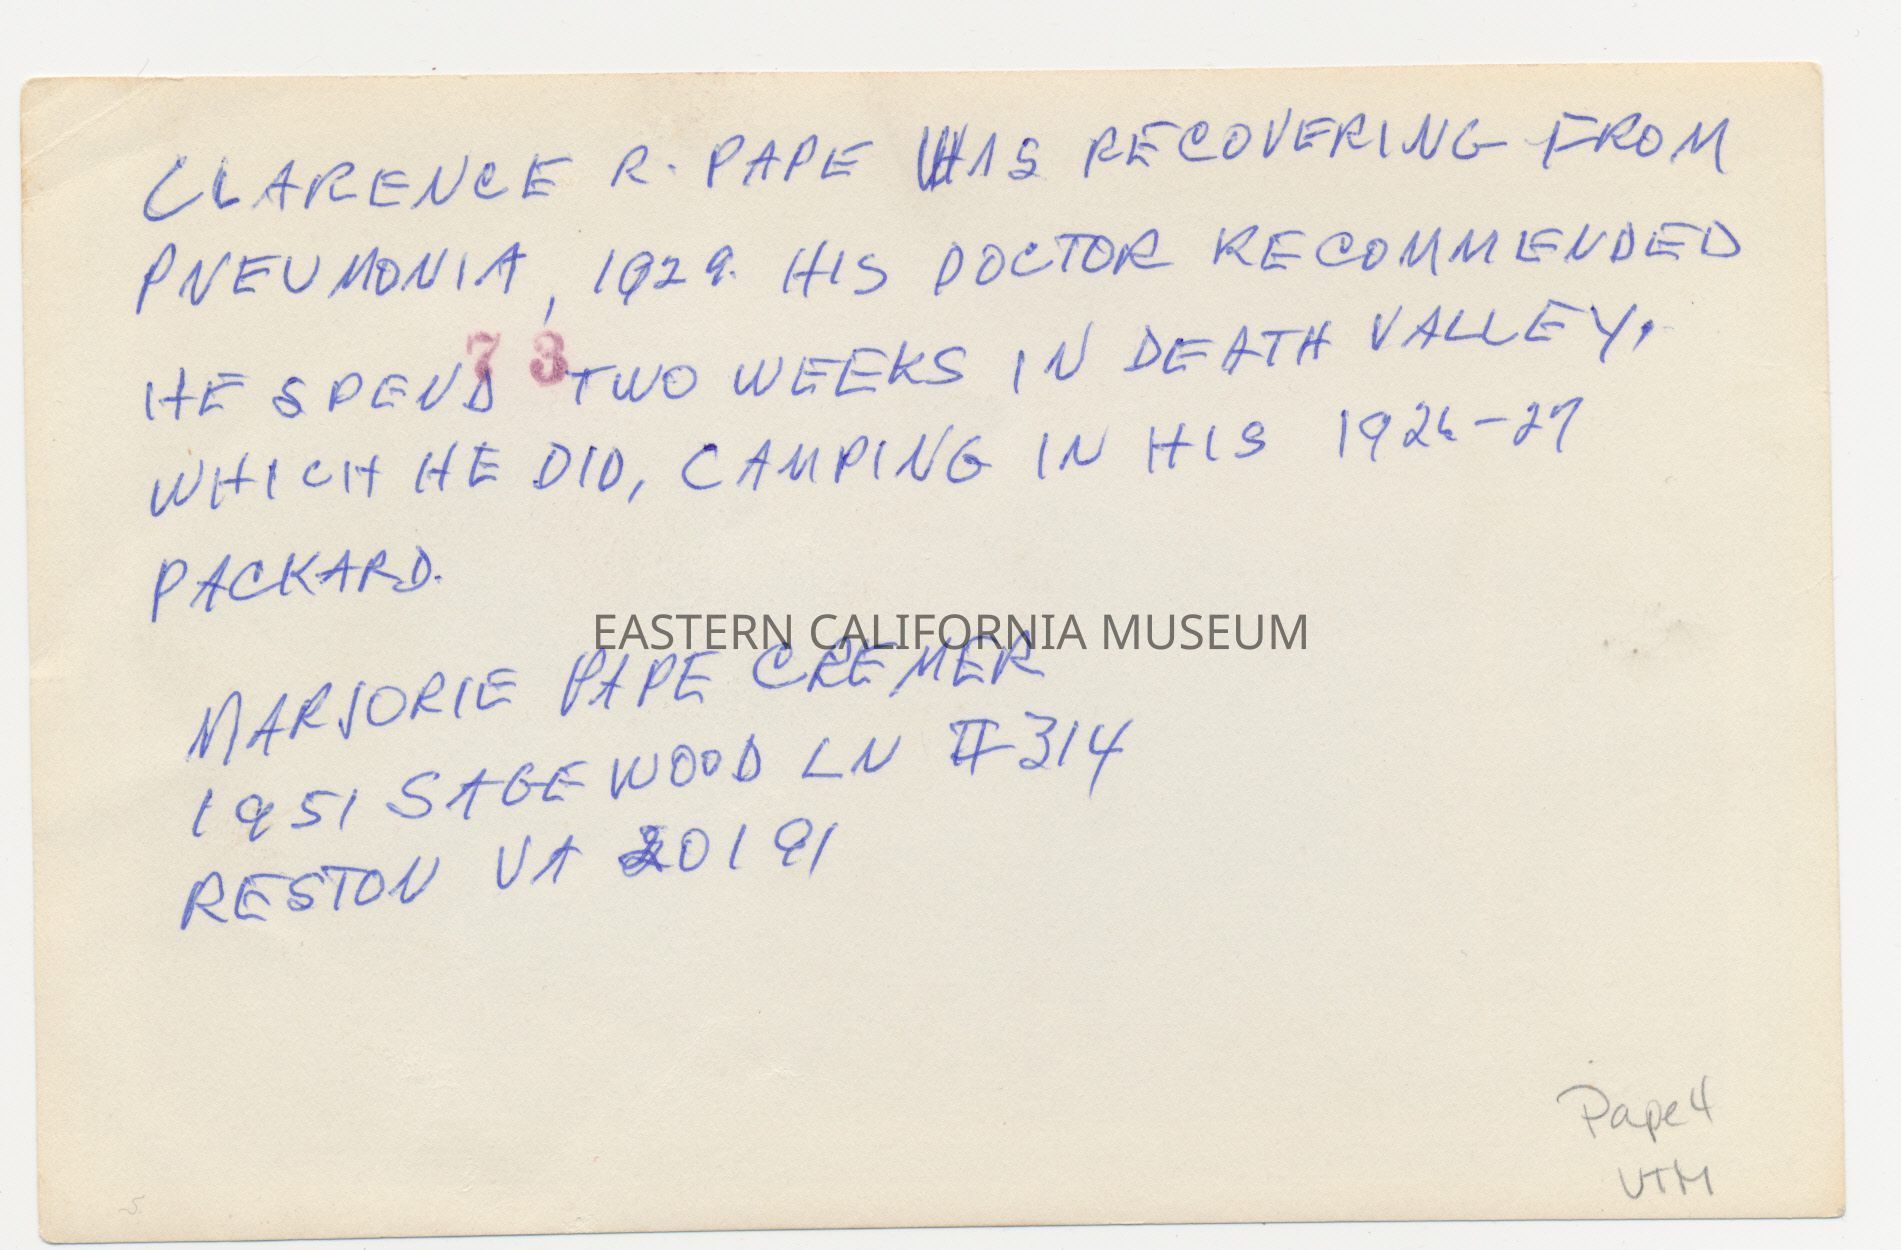 CLARENCE R. PAPE WAS RECOVERING FROM
PNEUMONIA, 1929. HIS DOCTOR RECOMMENDED
73
HE SPEND TWO WEEKS IN DEATH VALLEY,
WHICH HE DID, CAMPING IN HIS 1926-27
PACKARD.
EASTERN CALIFORNIA MUSEUM
MARJORIE PAPE CREMER
1951 SAGEWOOD LN #314
RESTON VA 20191
Pape 4
VTM
5